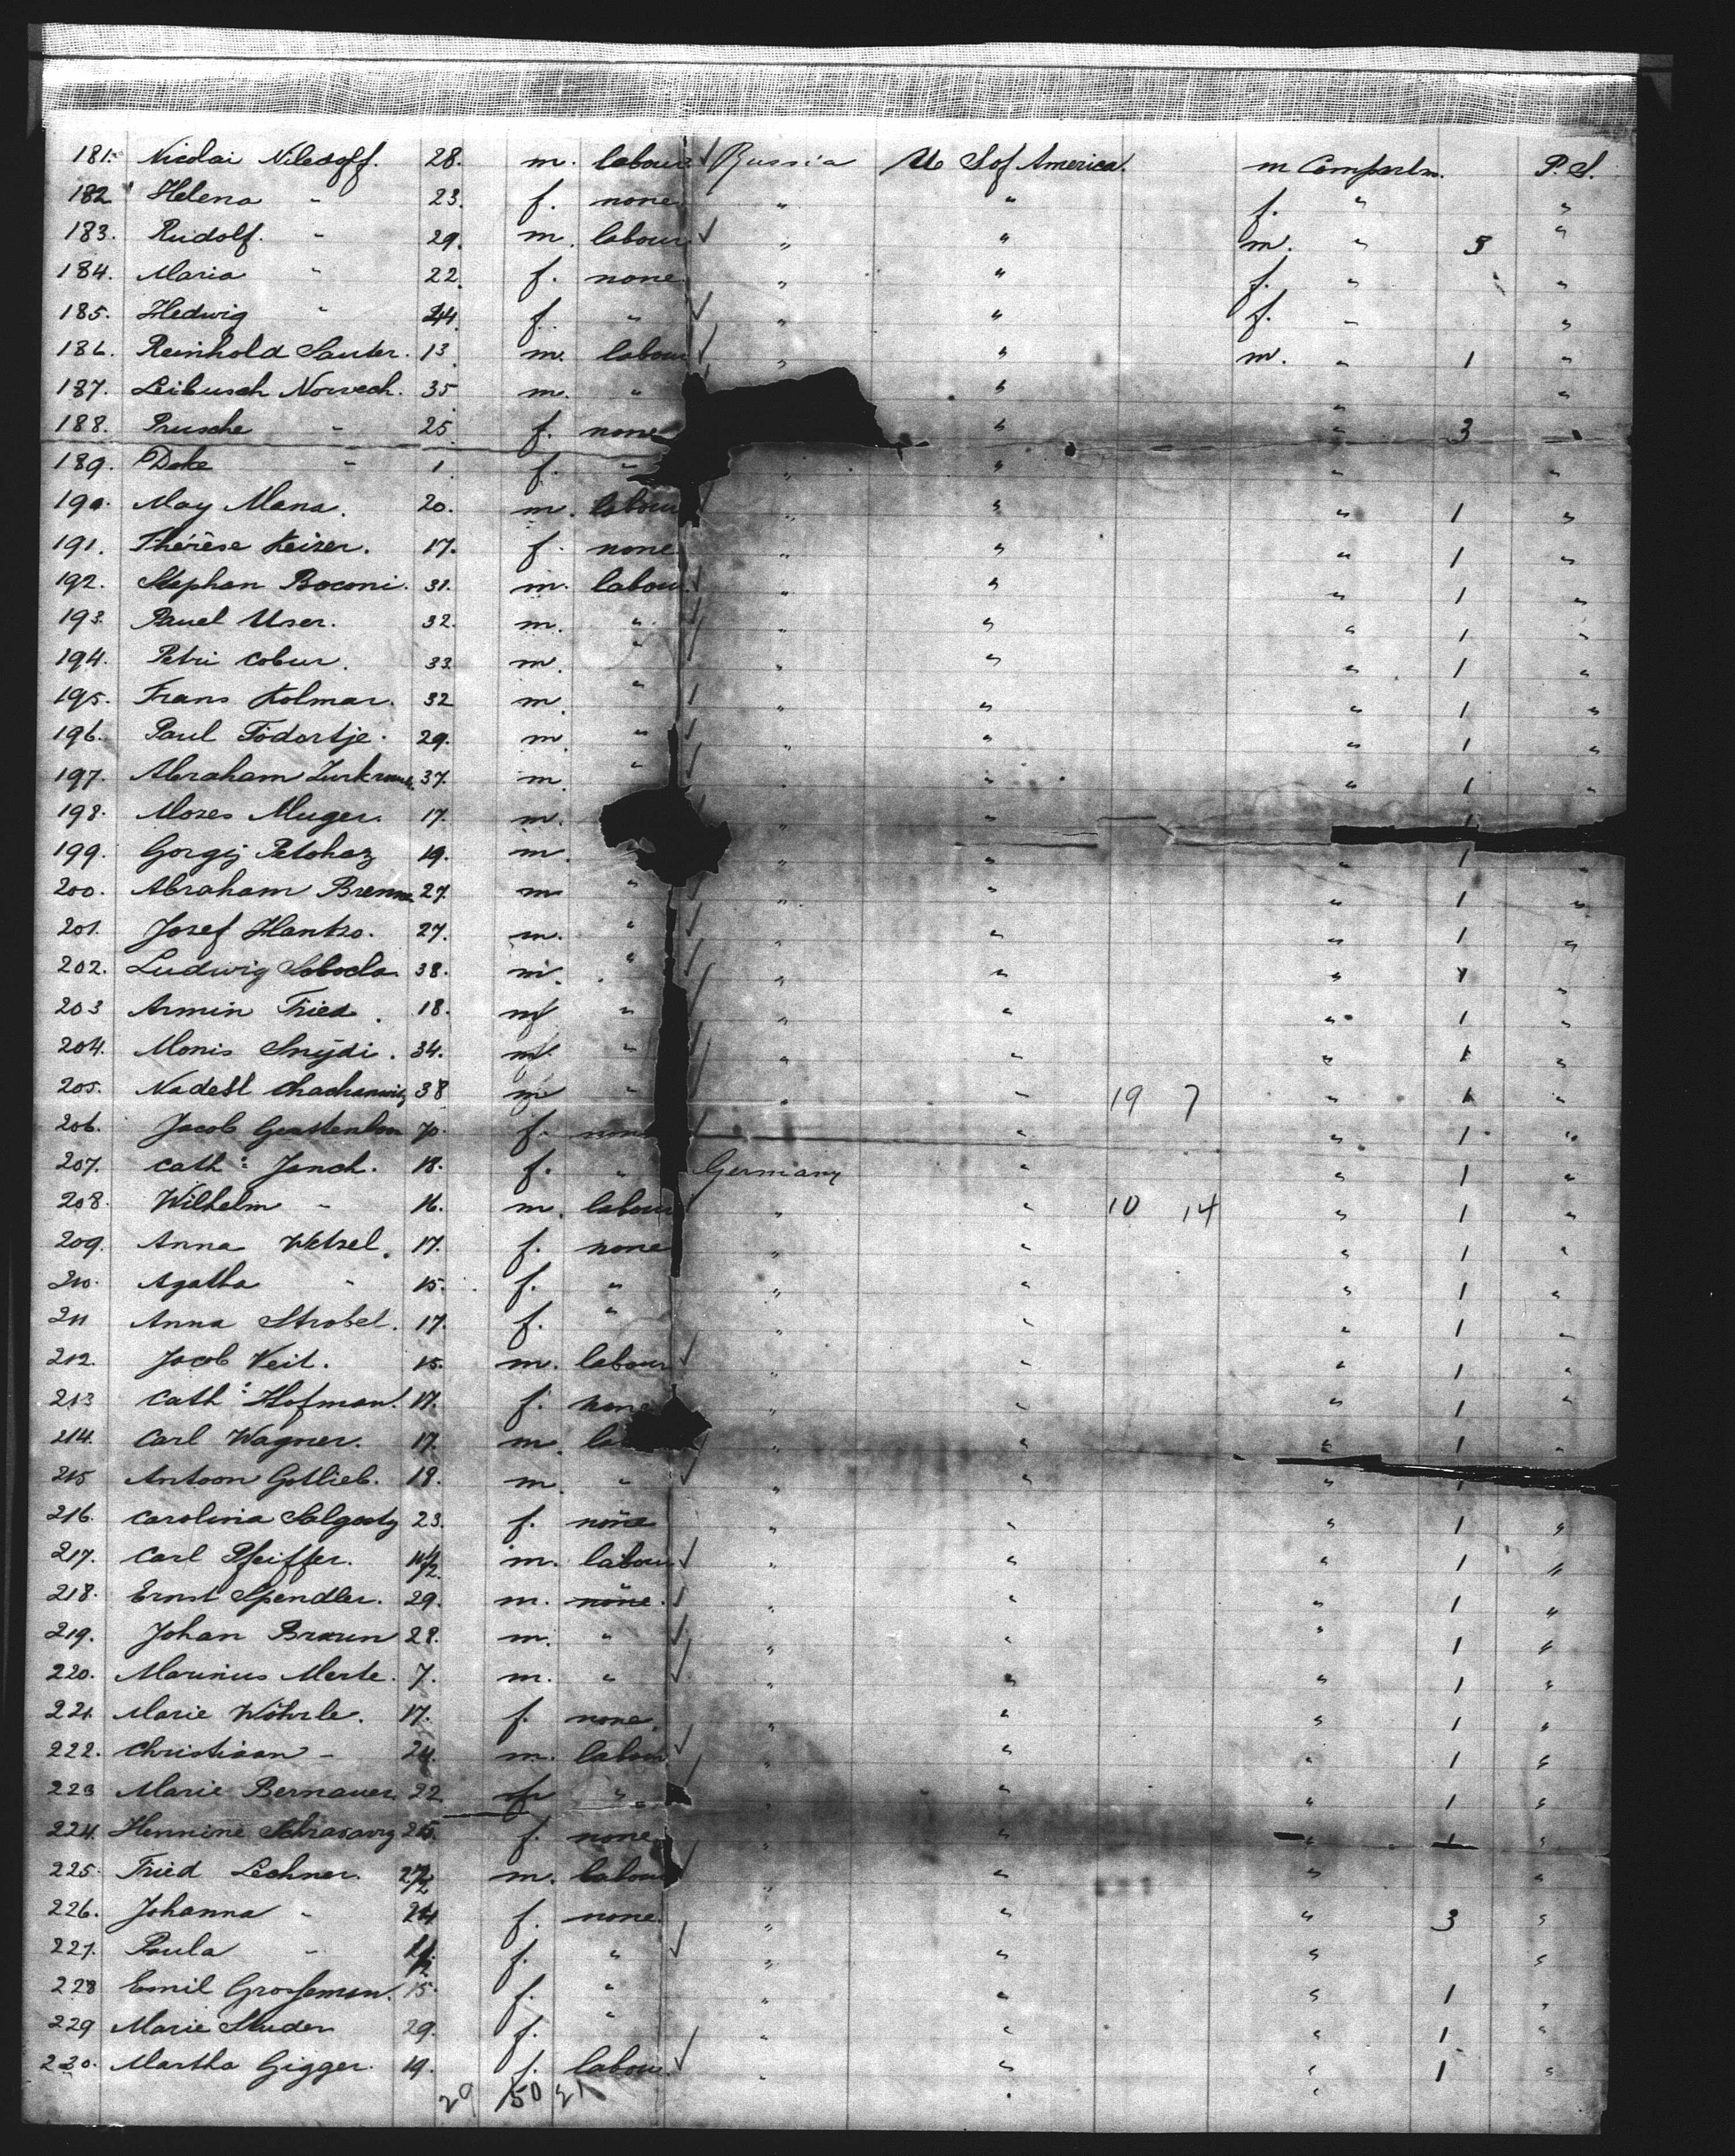 181. Nicolai Niledoff. 28. m. labour. ✓ Russia U S of America. m Compartm. P. S.
182. Helena " 23. f. none " " f. " "
183. Rudolf. " 29. m. labour ✓ " " m. " 5 "
184. Maria " 22. f. none " " f. " "
185. Hedwig " f. " ✓ " " f. " "
186. Reinhold Sauter. 13. m. labour ✓ " " m. " 1 "
187. Leibusch Norvech. 35 m. " " " "
188. Prusche " 25. f. none " " 3 "
189. Doke " 1. f. " " " " "
190. May Mana. 20. m. labour ✓ " " " 1 "
191. Thérèse Keizer. 17. f. none " " " 1 "
192. Stephan Boconi. 31. m. labour. ✓ " " " 1 "
193. Pavel User. 32. m. " ✓ " " " 1 "
194. Petri Cobur. 33. m. " ✓ " " " 1 "
195. Frans Kolmar. 32 m. " ✓ " " " 1 "
196. Paul Födortje. 29. m. " ✓ " " " 1 "
197. Abraham 37. m. " ✓ " " " 1 "
198. Mozes Muger. 17. m. ✓ " " 1
199. Gorgij Petohaz 19. m. " " " 1 "
200. Abraham Brenne 27. m " ✓ " " " 1 "
201. Josef Hantzo. 27. m. " ✓ " " " 1 "
202. Ludwig Soboda 38. m. " ✓ " " " 1 "
203 Armin Fried. 18. m " ✓ " " " 1 "
204. Monis Snijdi. 34. m. " ✓ " " " 1 "
205. Nadesl 38 m " ✓ " " 19 7 " 1 "
206. Jacob 70. f. none ✓ " " 1 "
207. Cath: Janch. 18. f. " Germany " " 1 "
208. Wilhelm " 16. m. labour " " 10 14 " 1 "
209. Anna Wetzel. 17. f. none " " " 1 "
210. Agatha " 15. f. " " " " 1 "
211 Anna Strobel. 17. f. " " " " 1 "
212. Jacob Veit. 15. m. labour ✓ " " " 1 "
213 Cath: Hofman. 17. f. none " " " 1 "
214. Carl Wagner. 17. m. la ✓ " " " 1 "
215 Antoon Gotlieb. 18. m. " ✓ " " " 1 "
216. Carolina Salgaty 23. f. none " " " 1 "
217. Carl Pfeiffer. m. labour ✓ " " " 1 "
218. Ernst Spendler. 29. m. none. ✓ " " " 1 "
219. Johan Braun 28. m. " ✓ " " " 1 "
220. Marinus Merte. 7. m. " ✓ " " " 1 "
221. Marie Wöhrle. 17. f. none. " " " 1 "
222. Christiaan " 24. m. labour ✓ " " " 1 "
223 Marie Bernauer 22 " ✓ " " " 1 "
224. Hermine f. none " " " 1 "
225. Fried Lechner. m. labour ✓ " " " "
226. Johanna " 24 f. none. " " " 3 "
227. Paula " f. " ✓ " " " "
228 Emil Grossman. 15. f. " " " " 1 "
229 Marie Studer 29. f. " " " " 1 "
230. Martha Gigger. 19. f. labour. ✓ " " " 1 "
29 50 21